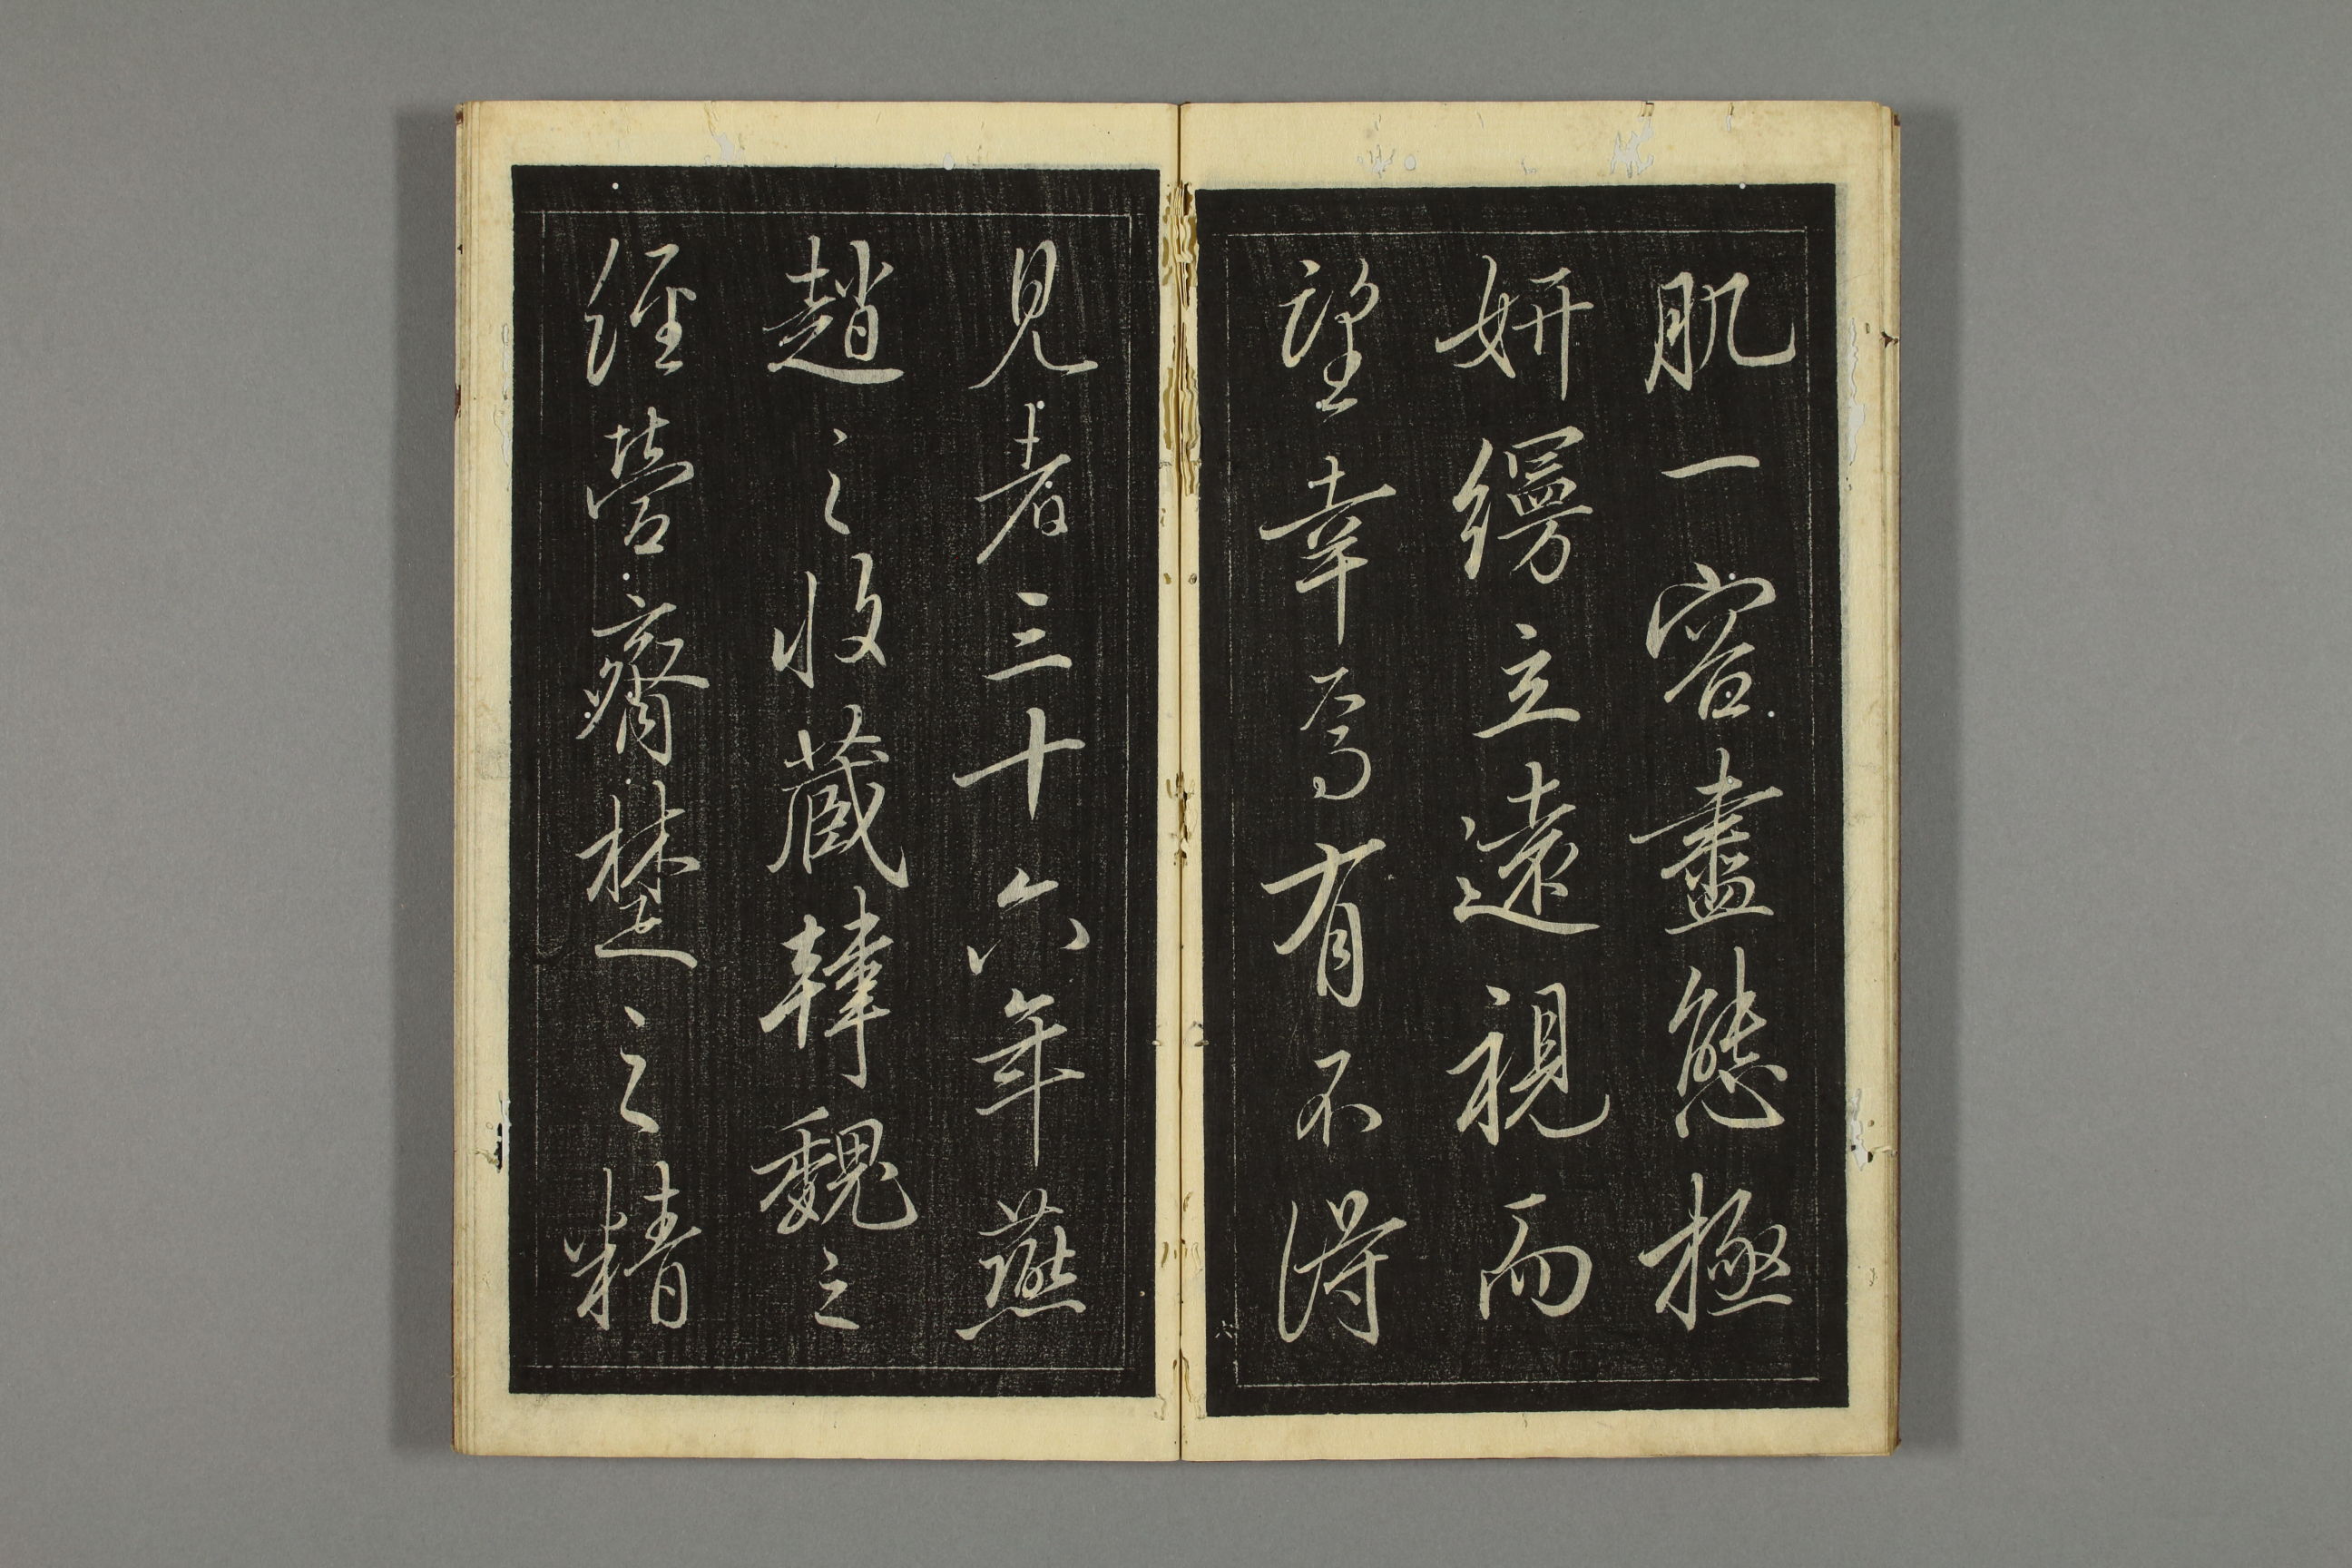 肌一容盡態極
妍縵立遠視而
望幸焉有不得
見者三十六年燕
趙之收藏韓魏之
經營齊楚之精